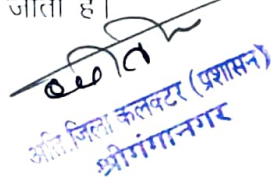 जाता है।
अति. जिला कलक्टर (प्रशासन)
श्रीगंगानगर